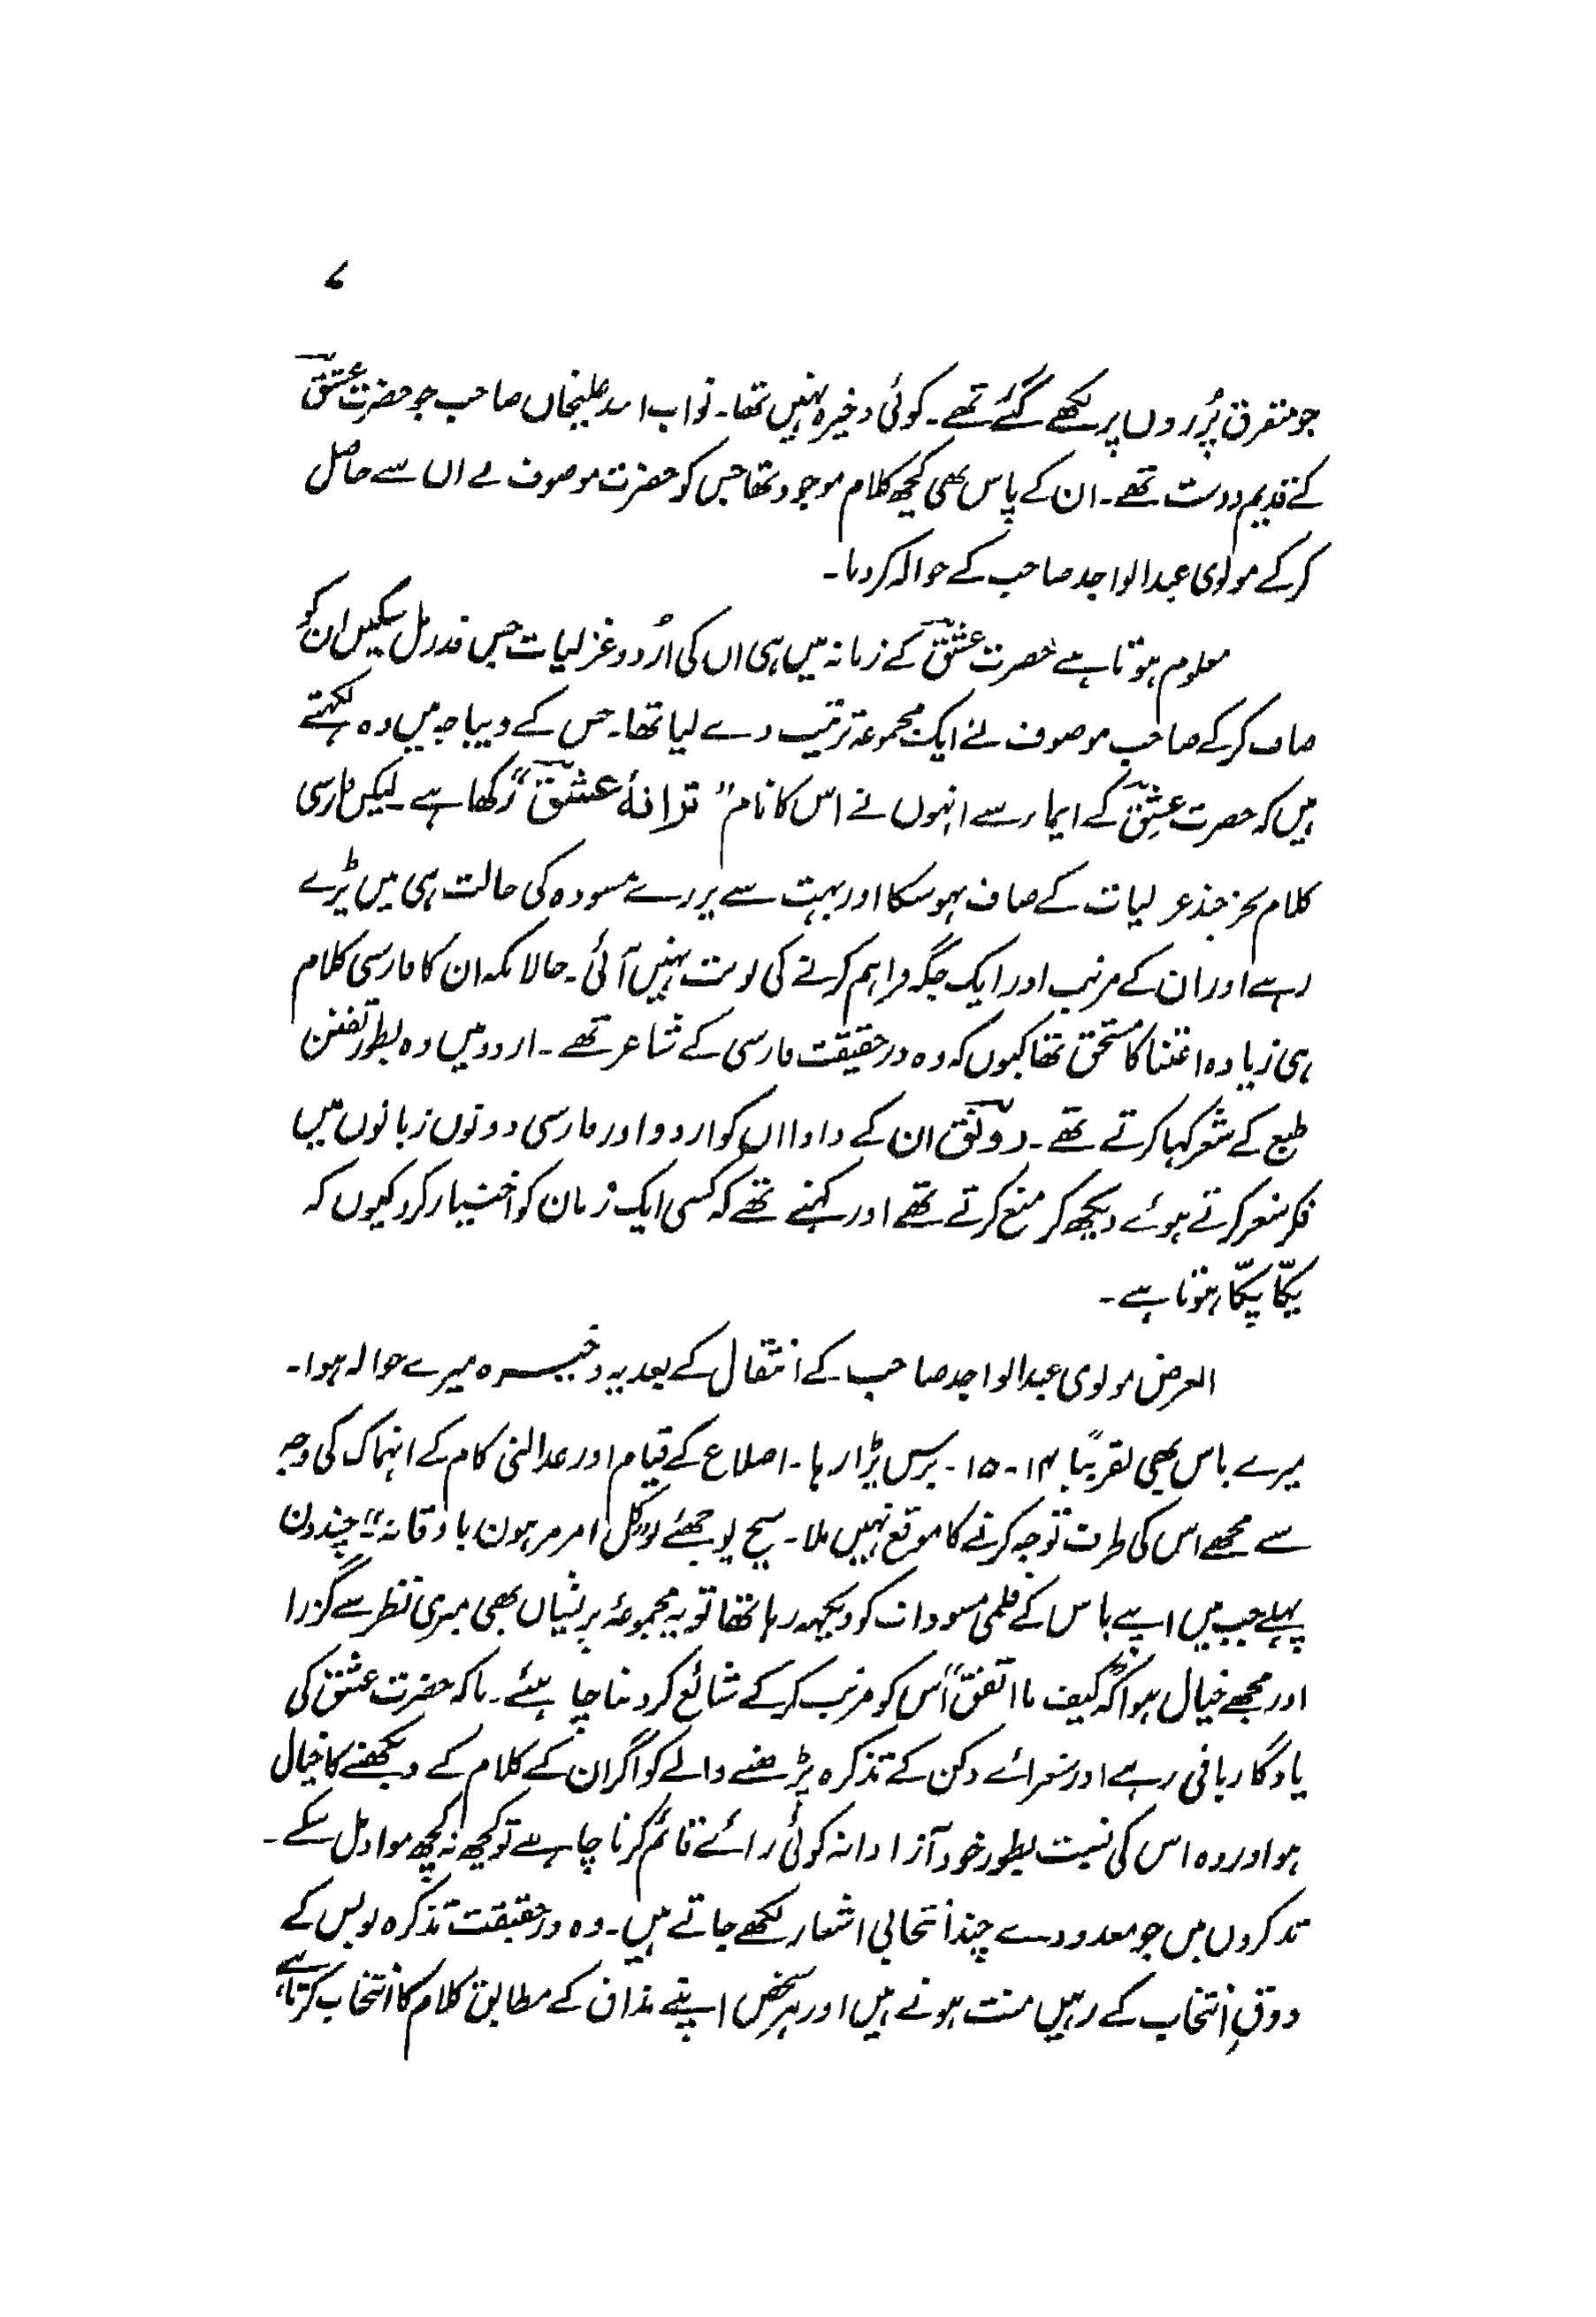 جو متفرق پُرزوں پر لکھے گئے تھے۔ کوئی ذخیرہ نہیں تھا۔ نواب اسد علیخاں صاحب جو حضرت عشقؔ
کے قدیم دوست تھے۔ ان کے پاس بھی کچھ کلام موجود تھا جس کو حضرت موصوف نے ان سے حاصل
کر کے مولوی عبدالواجد صاحب کے حوالہ کر دیا۔
معلوم ہوتا ہے حضرت عشقؔ کے زمانہ میں ہی ان کی اُردو غزلیات جس قدر مل سکیں ان کو
صاف کر کے صاحب موصوف نے ایک مجموعہ ترتیب دے لیا تھا۔ جس کے دیباچہ میں وہ لکھتے
ہیں کہ حضرت عشقؔ کے ایماء سے انہوں نے اس کا نام "ترانۂ عشقؔ" رکھا ہے۔ لیکن فارسی
کلام بجز چند غزلیات کے صاف ہو سکا اور بہت سے پرزے مسودہ کی حالت ہی میں پڑے
رہے اور ان کے مرتب اور ایک جگہ فراہم کرنے کی نوبت نہیں آئی۔ حالانکہ ان کا فارسی کلام
ہی زیادہ اعتنا کا مستحق تھا کیوں کہ وہ درحقیقت فارسی کے شاعر تھے۔ اردو میں وہ بطور تفنن
طبع کے شعر کہا کرتے تھے۔ رونقؔ ان کے دادا ان کو اردو اور فارسی دونوں زبانوں میں
فکر شعر کرتے ہوئے دیکھ کر منع کرتے تھے اور کہتے تھے کہ کسی ایک زبان کو اختیار کرو کیوں کہ
یکّا پکّا ہوتا ہے۔
الغرض مولوی عبدالواجد صاحب کے انتقال کے بعد یہ ذخیرہ میرے حوالہ ہوا۔
میرے پاس بھی تقریباً ۱۴-۱۵- برس پڑا رہا۔ اضلاع کے قیام اور عدالتی کام کے انہماک کی وجہ
سے مجھے اس کی طرف توجہ کرنے کا موقع نہیں ملا۔ سچ پوچھئے تو "کل امر مرہون باوقاتہ" چند دن
پہلے جب میں اپنے پاس کے قلمی مسودات کو دیکھ رہا تھا تو یہ مجموعۂ پریشاں بھی میری نظر سے گزرا
اور مجھے خیال ہوا کہ "کیف ما اتفق" اُس کو مرتب کر کے شائع کر دینا چاہئے۔ تاکہ حضرت عشق کی
یادگار باقی رہے اور شعرائے دکن کے تذکرہ پڑھنے والے کو اگر ان کے کلام کے دیکھنے کا خیال
ہو اور وہ اس کی نسبت بطور خود آزادانہ کوئی رائے قائم کرنا چاہے تو کچھ نہ کچھ مواد مل سکے۔
تذکروں میں جو معدودے چند انتخابی اشعار لکھے جاتے ہیں۔ وہ درحقیقت تذکرہ نویس کے
ذوقِ انتخاب کے رہین منت ہوتے ہیں اور ہر شخص اپنے مذاق کے مطابق کلام کا انتخاب کرتا ہے